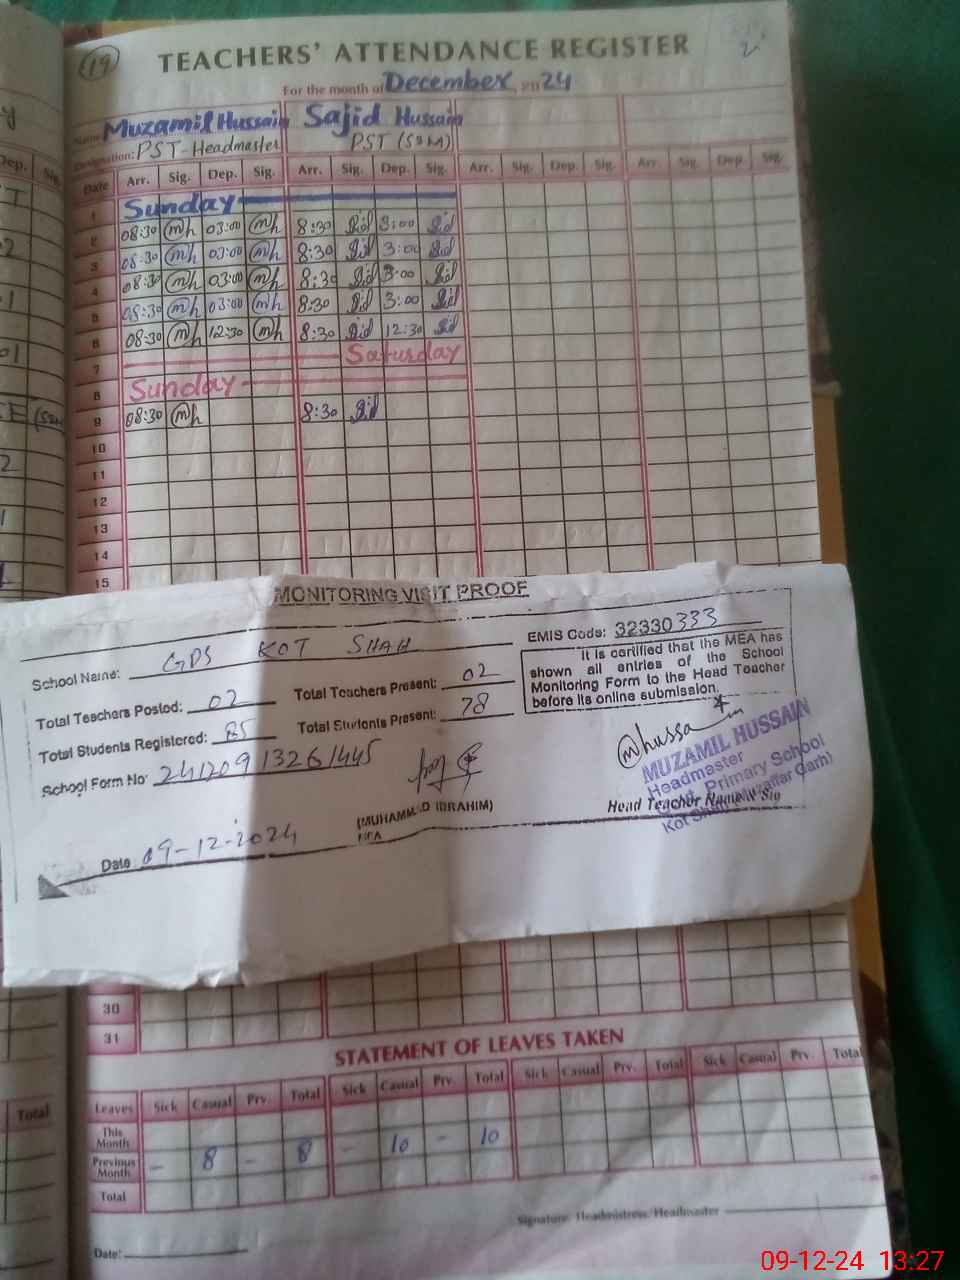 19
TEACHERS' ATTENDANCE REGISTER
For the month of December, 2024
Name Muzamil Hussain Sajid Hussain
Designation: PST-Headmaster PST (SSM)
Date Arr. Sig. Dep. Sig. Arr. Sig. Dep. Sig. Arr. Sig. Dep. Sig. Arr. Sig. Dep. Sig.
1 Sunday
2 08:30 mh 03:00 mh 8:30 3:00
3 08:30 mh 03:00 mh 8:30 3:00
4 08:30 mh 03:00 mh 8:30 3:00
5 08:30 mh 03:00 mh 8:30 3:00
6 08:30 mh 12:30 mh 8:30 12:30
7 Saturday
8 Sunday
9 08:30 mh 8:30
10
11
12
13
14
15
MONITORING VISIT PROOF
School Name: GPS KOT SHAH EMIS Code: 32330333
Total Teachers Posted: 02 Total Teachers Present: 02
Total Students Registered: 85 Total Students Present: 78
School Form No: 24120913261445
It is certified that the MEA has
shown all entries of the School
Monitoring Form to the Head Teacher
before its online submission.
mhussain
MUZAMIL HUSSAIN
Headmaster
Govt. Primary School
Kot Shah (Muzaffar Garh)
Head Teacher Name & Sig
(MUHAMMAD IBRAHIM)
MEA
Date 09-12-2024
30
31
STATEMENT OF LEAVES TAKEN
Leaves Sick Casual Prv. Total Sick Casual Prv. Total Sick Casual Prv. Total Sick Casual Prv. Total
This Month
Previous Month - 8 - 8 - 10 - 10
Total
Signature: Headmistress/Headmaster
Date:
Total
09-12-24 13:27